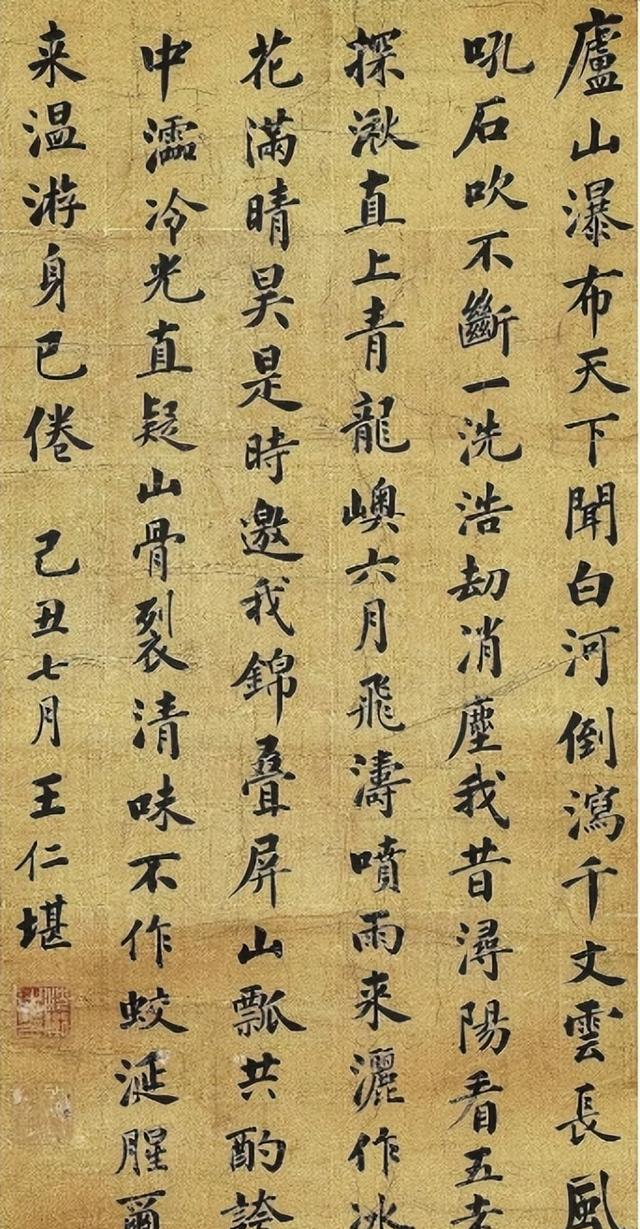 廬山瀑布天下聞白河倒瀉千丈雲長風
吼石吹不斷一洗浩劫消塵我昔潯陽看五老
探湫直上青龍嶼六月飛濤噴雨來灑作冰
花滿晴昊是時邀我錦疊屏山瓢共酌誇
中濡冷光直疑山骨裂清味不作蛟涎腥爾
来温游身已倦
己丑七月王仁堪